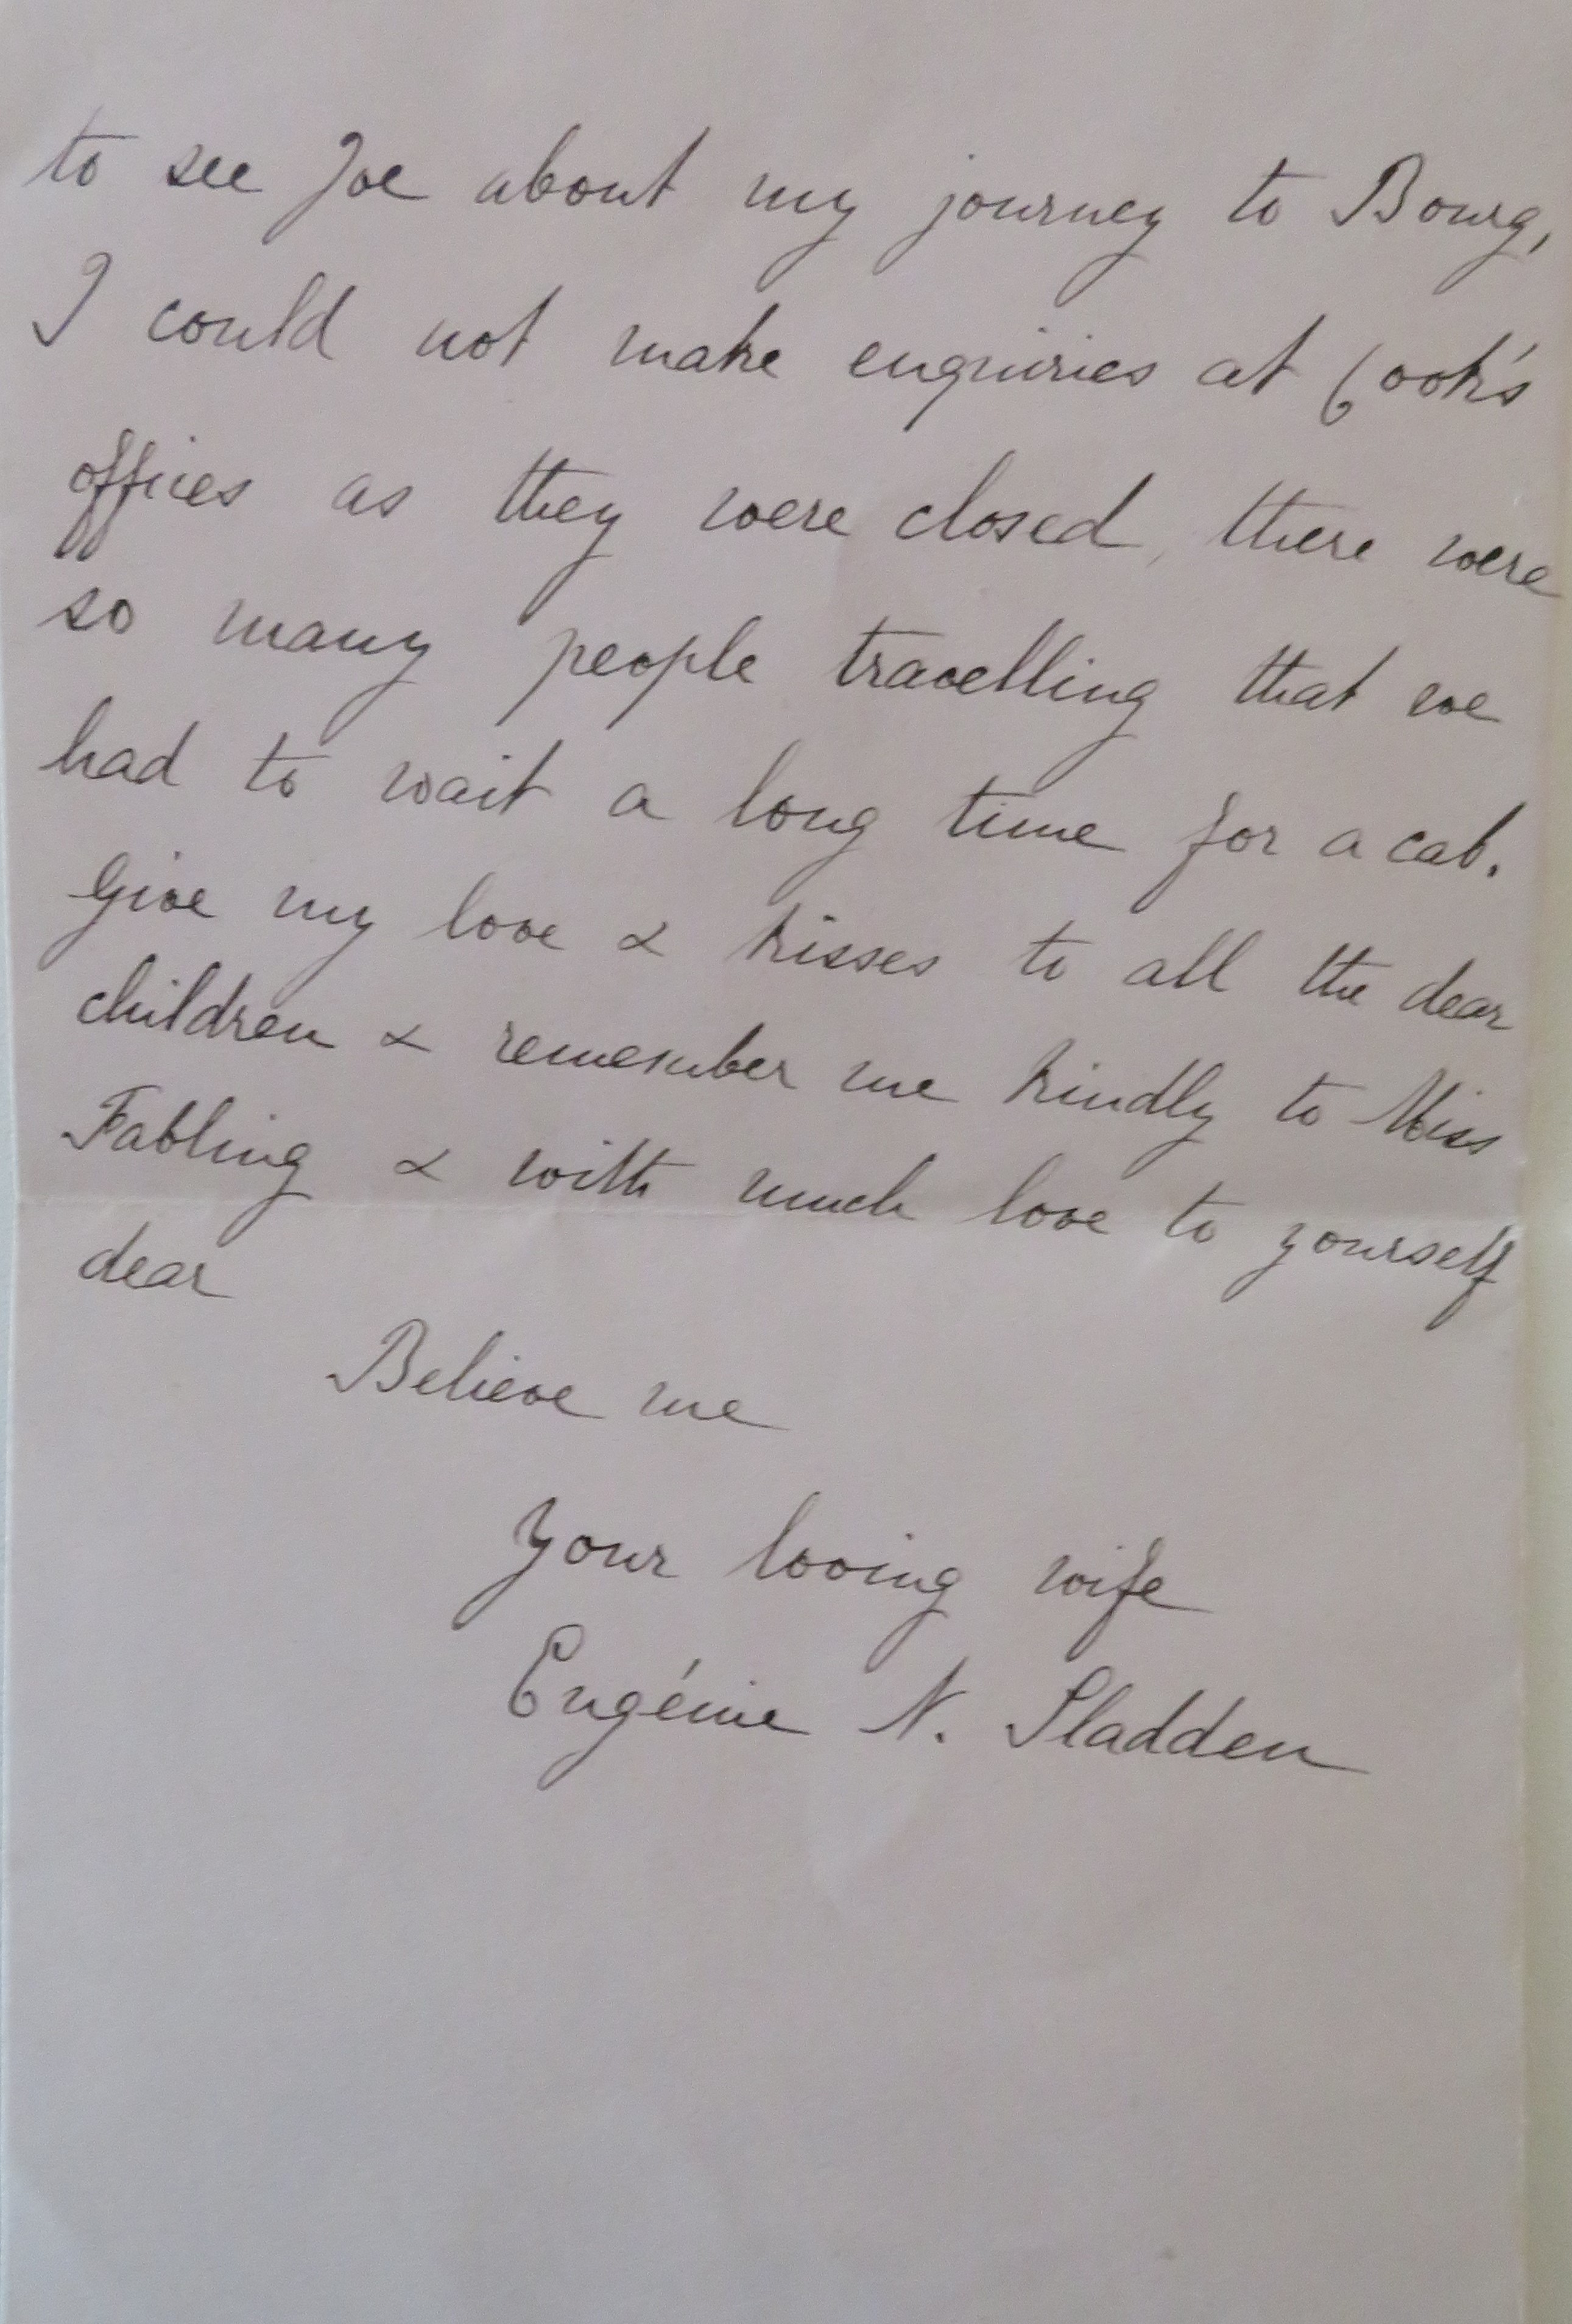 to see Joe about my journey to Bourg,
I could not make enquiries at Cook's
offices as they were closed, there were
so many people travelling that we
had to wait a long time for a cab.
Give my love & kisses to all the dear
children & remember me kindly to Miss
Fabling & with much love to yourself
dear
Believe me
Your loving wife
Eugénie N. Sladden